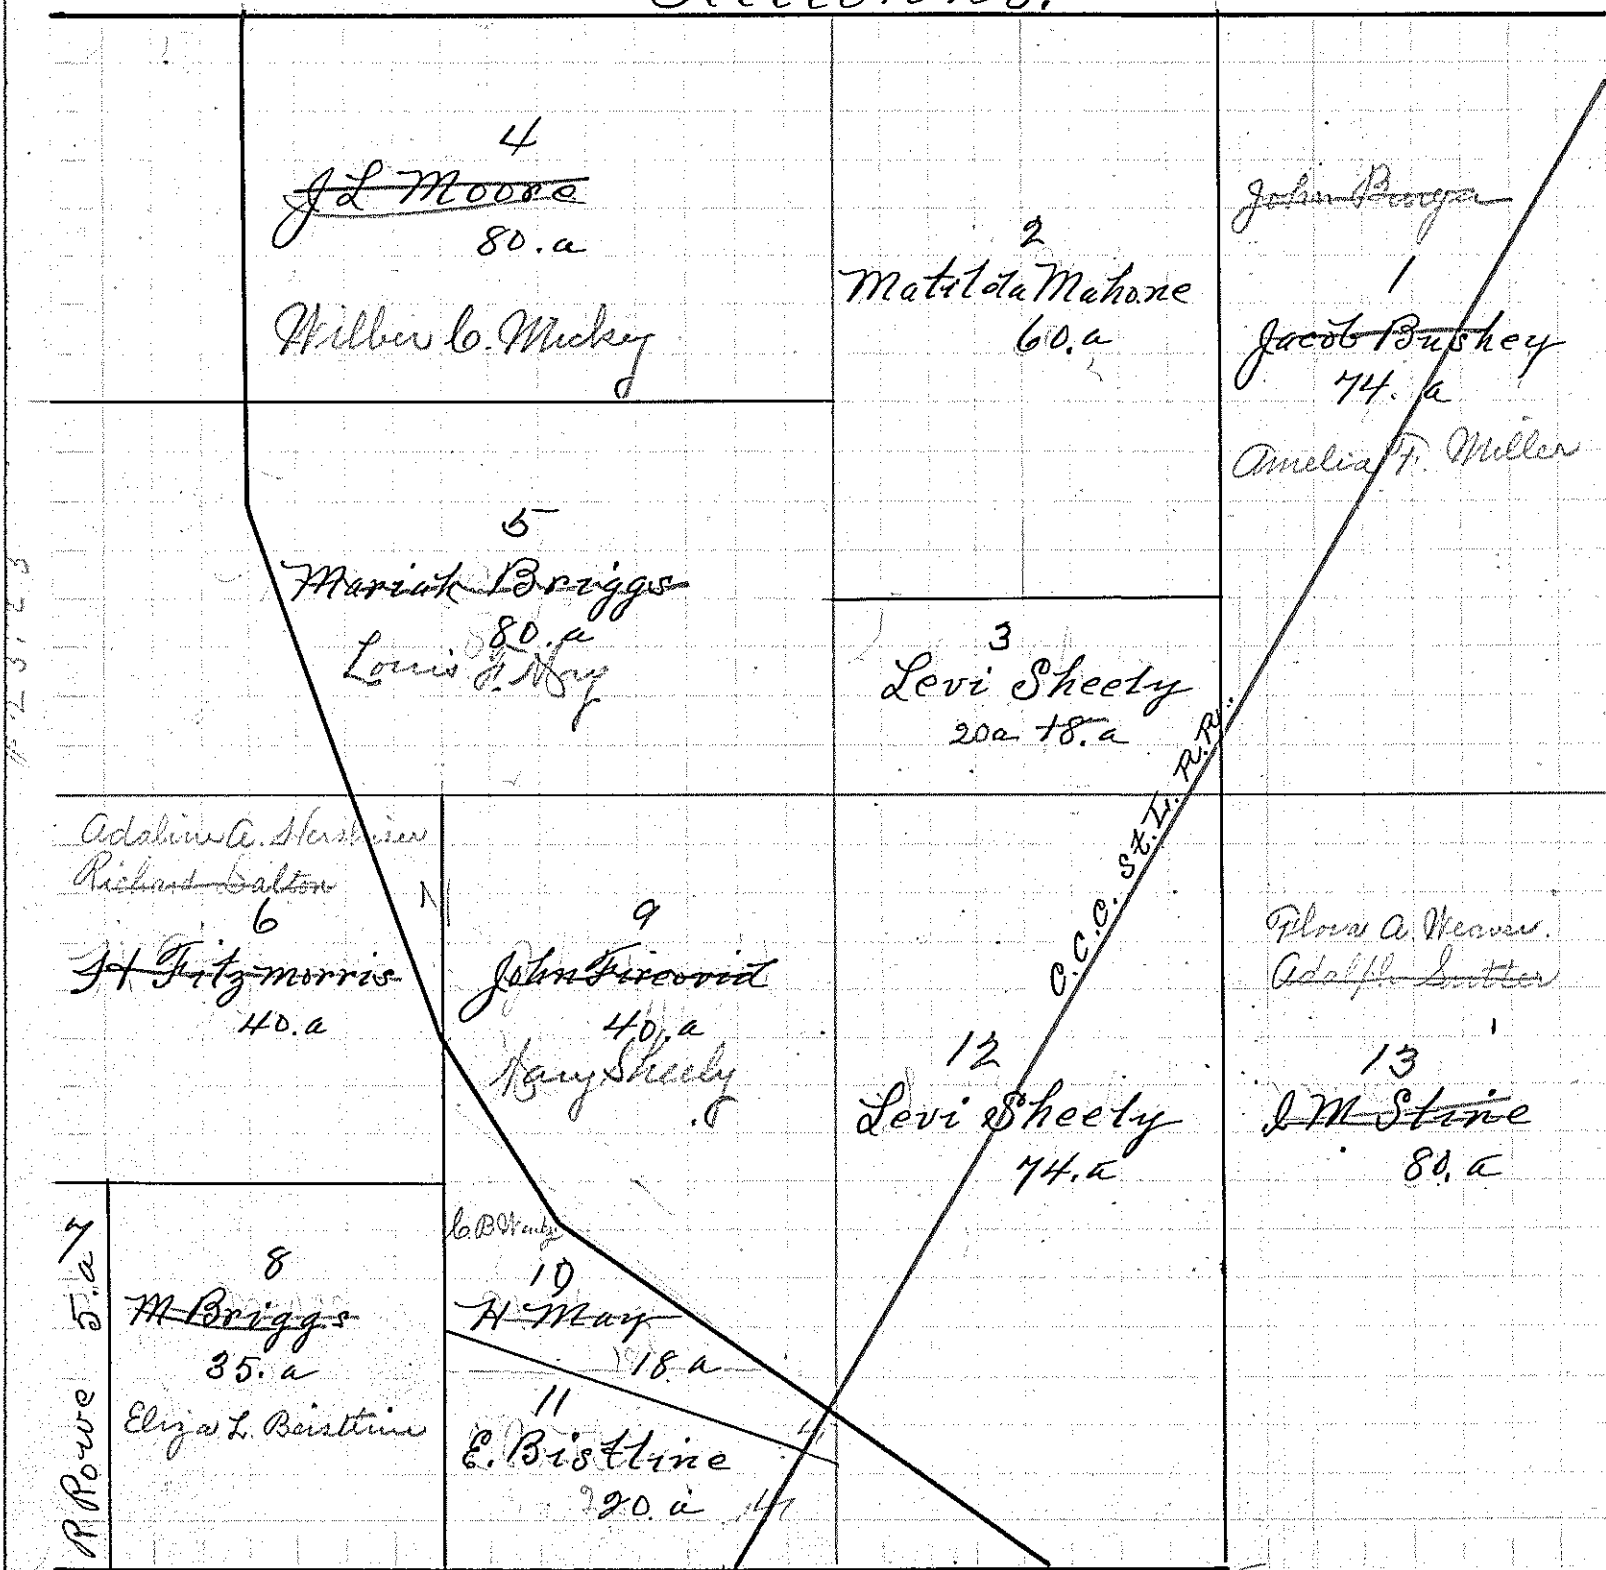 4
J L Moore
80.a
Wilber C. Mickey
2
Matilda Mahone
60.a
1
Jacob Bushey
74. a
Amelia F. Miller
5
Mariah Briggs
80.a
3
Levi Sheely
20a +8.a
C.C.C. St.L. R.R.
Adaline A.
Richard Dalton
6
Fitzmorris
40.a
9
John Fireovid
40.a
Sheely
12
Levi Sheely
74.a
Flora A. Weaver.
Adolph Sutter
13
M Stine
80.a
7
R Rowe 5.a
8
M Briggs
35.a
Eliza L. Beisttine
C B
10
H May
18 a
11
E. Bistline
20.a